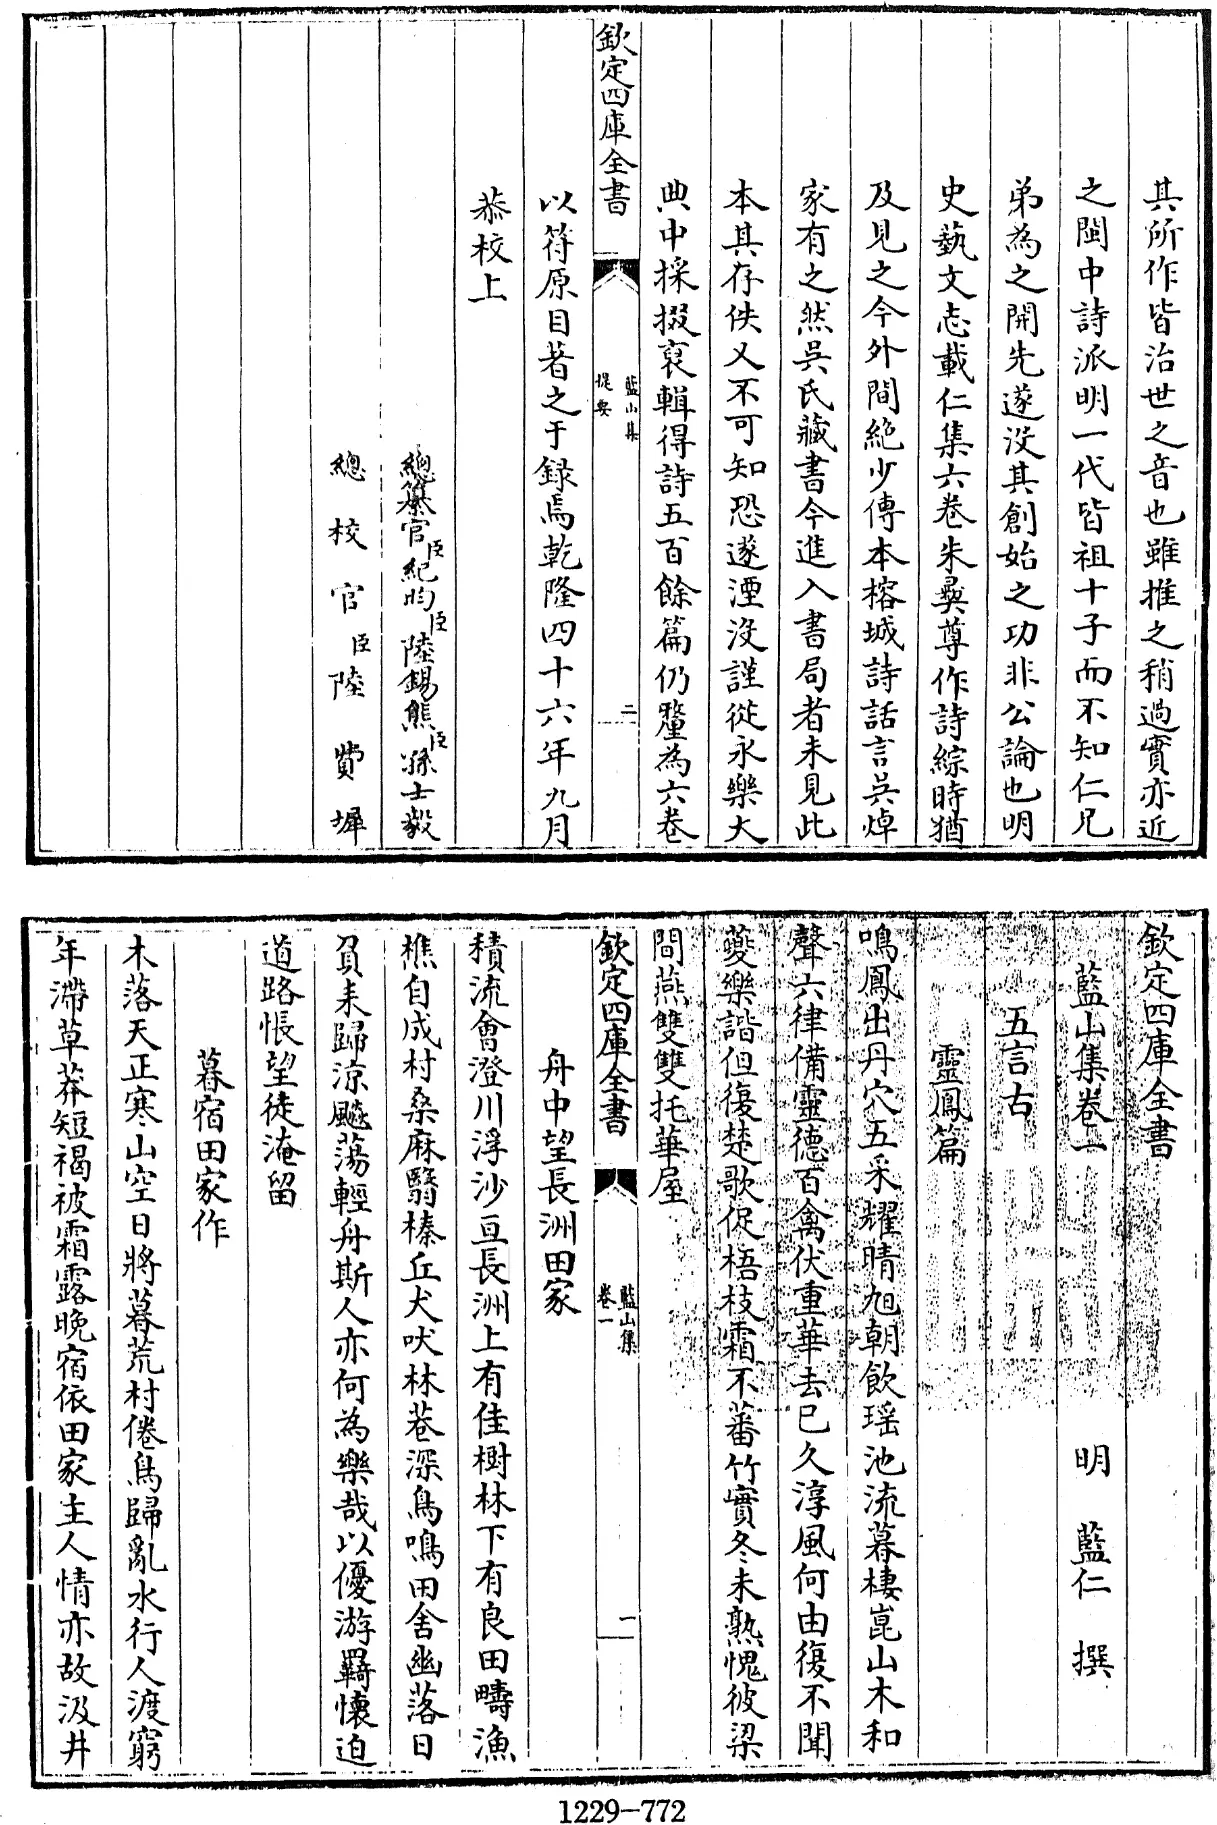 其所作皆治世之音也雖推之稍過實亦近
之閩中詩派明一代皆祖十子而不知仁兄
弟為之開先遂沒其創始之功非公論也明
史藝文志載仁集六卷朱彝尊作詩綜時猶
及見之今外間絶少傳本榕城詩話言吳焯
家有之然吳氏藏書今進入書局者未見此
本其存佚又不可知恐遂湮沒謹從永樂大
典中採掇裒輯得詩五百餘篇仍釐為六卷
欽定四庫全書
藍山集
提要
二
以符原目著之于録焉乾隆四十六年九月
恭校上
總纂官臣紀昀臣陸錫熊臣孫士毅
總校官臣陸費墀
欽定四庫全書
藍山集卷一
明 藍仁 撰
五言古
靈鳳篇
鳴鳳出丹穴五采耀晴旭朝飲瑶池流暮棲崑山木和
聲六律備靈德百禽伏重華去已久淳風何由復不聞
夔樂諧但復楚歌促梧枝霜不蕃竹實冬未熟愧彼梁
間燕雙雙托華屋
欽定四庫全書
藍山集
卷一
一
舟中望長洲田家
積流會澄川浮沙亘長洲上有佳樹林下有良田疇漁
樵自成村桑麻翳榛丘犬吠林巷深鳥鳴田舍幽落日
負耒歸涼飈蕩輕舟斯人亦何為樂哉以優游羇懷迫
道路悵望徒淹留
暮宿田家作
木落天正寒山空日將暮荒村倦鳥歸亂水行人渡窮
年滯草莽短褐被霜露晚宿依田家主人情亦故汲井
1229-772